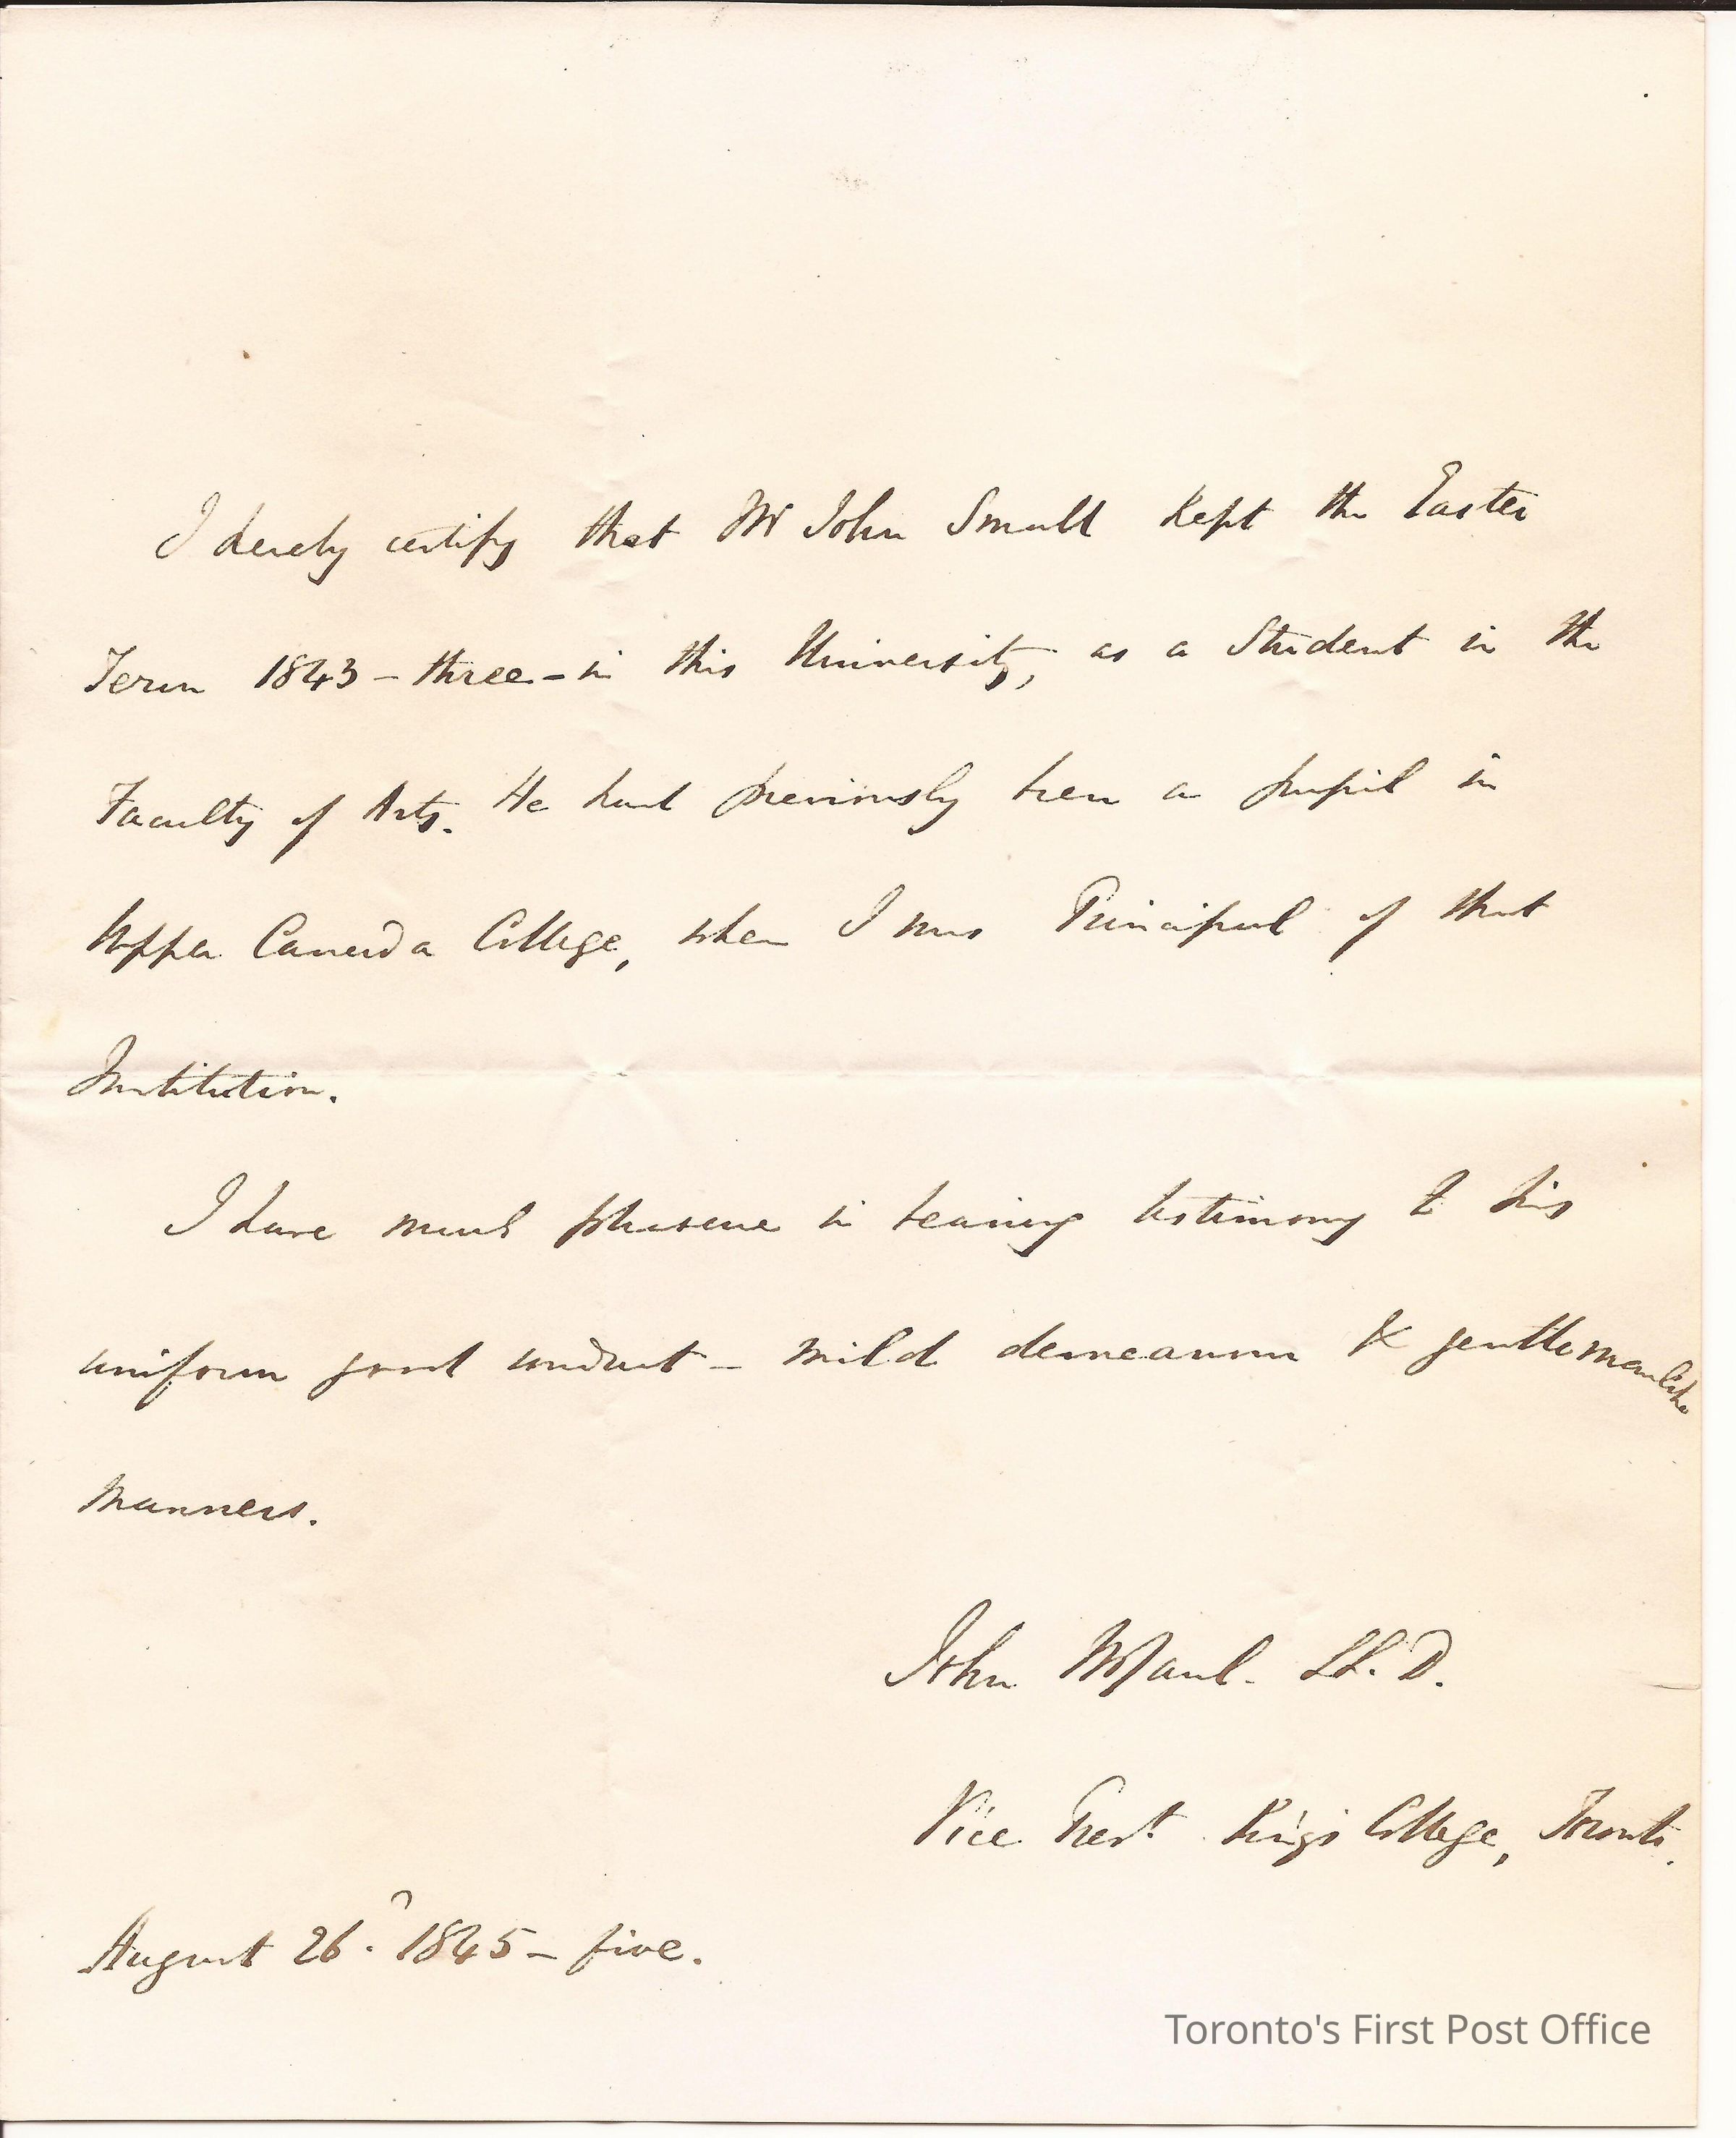 I hereby certify that Mr John Small kept the Easter
Term 1843 - three - in this University, as a Student in the
Faculty of Arts. He had previously been a pupil in
Upper Canada College, when I was Principal of that
Institution.
I have much pleasure in bearing testimony to his
uniform good conduct - mild demeanour & gentlemanlike
manners.
John McCaul. LL.D.
Vice Prest. King's College, Toronto.
August 26. 1845 - five.
Toronto's First Post Office